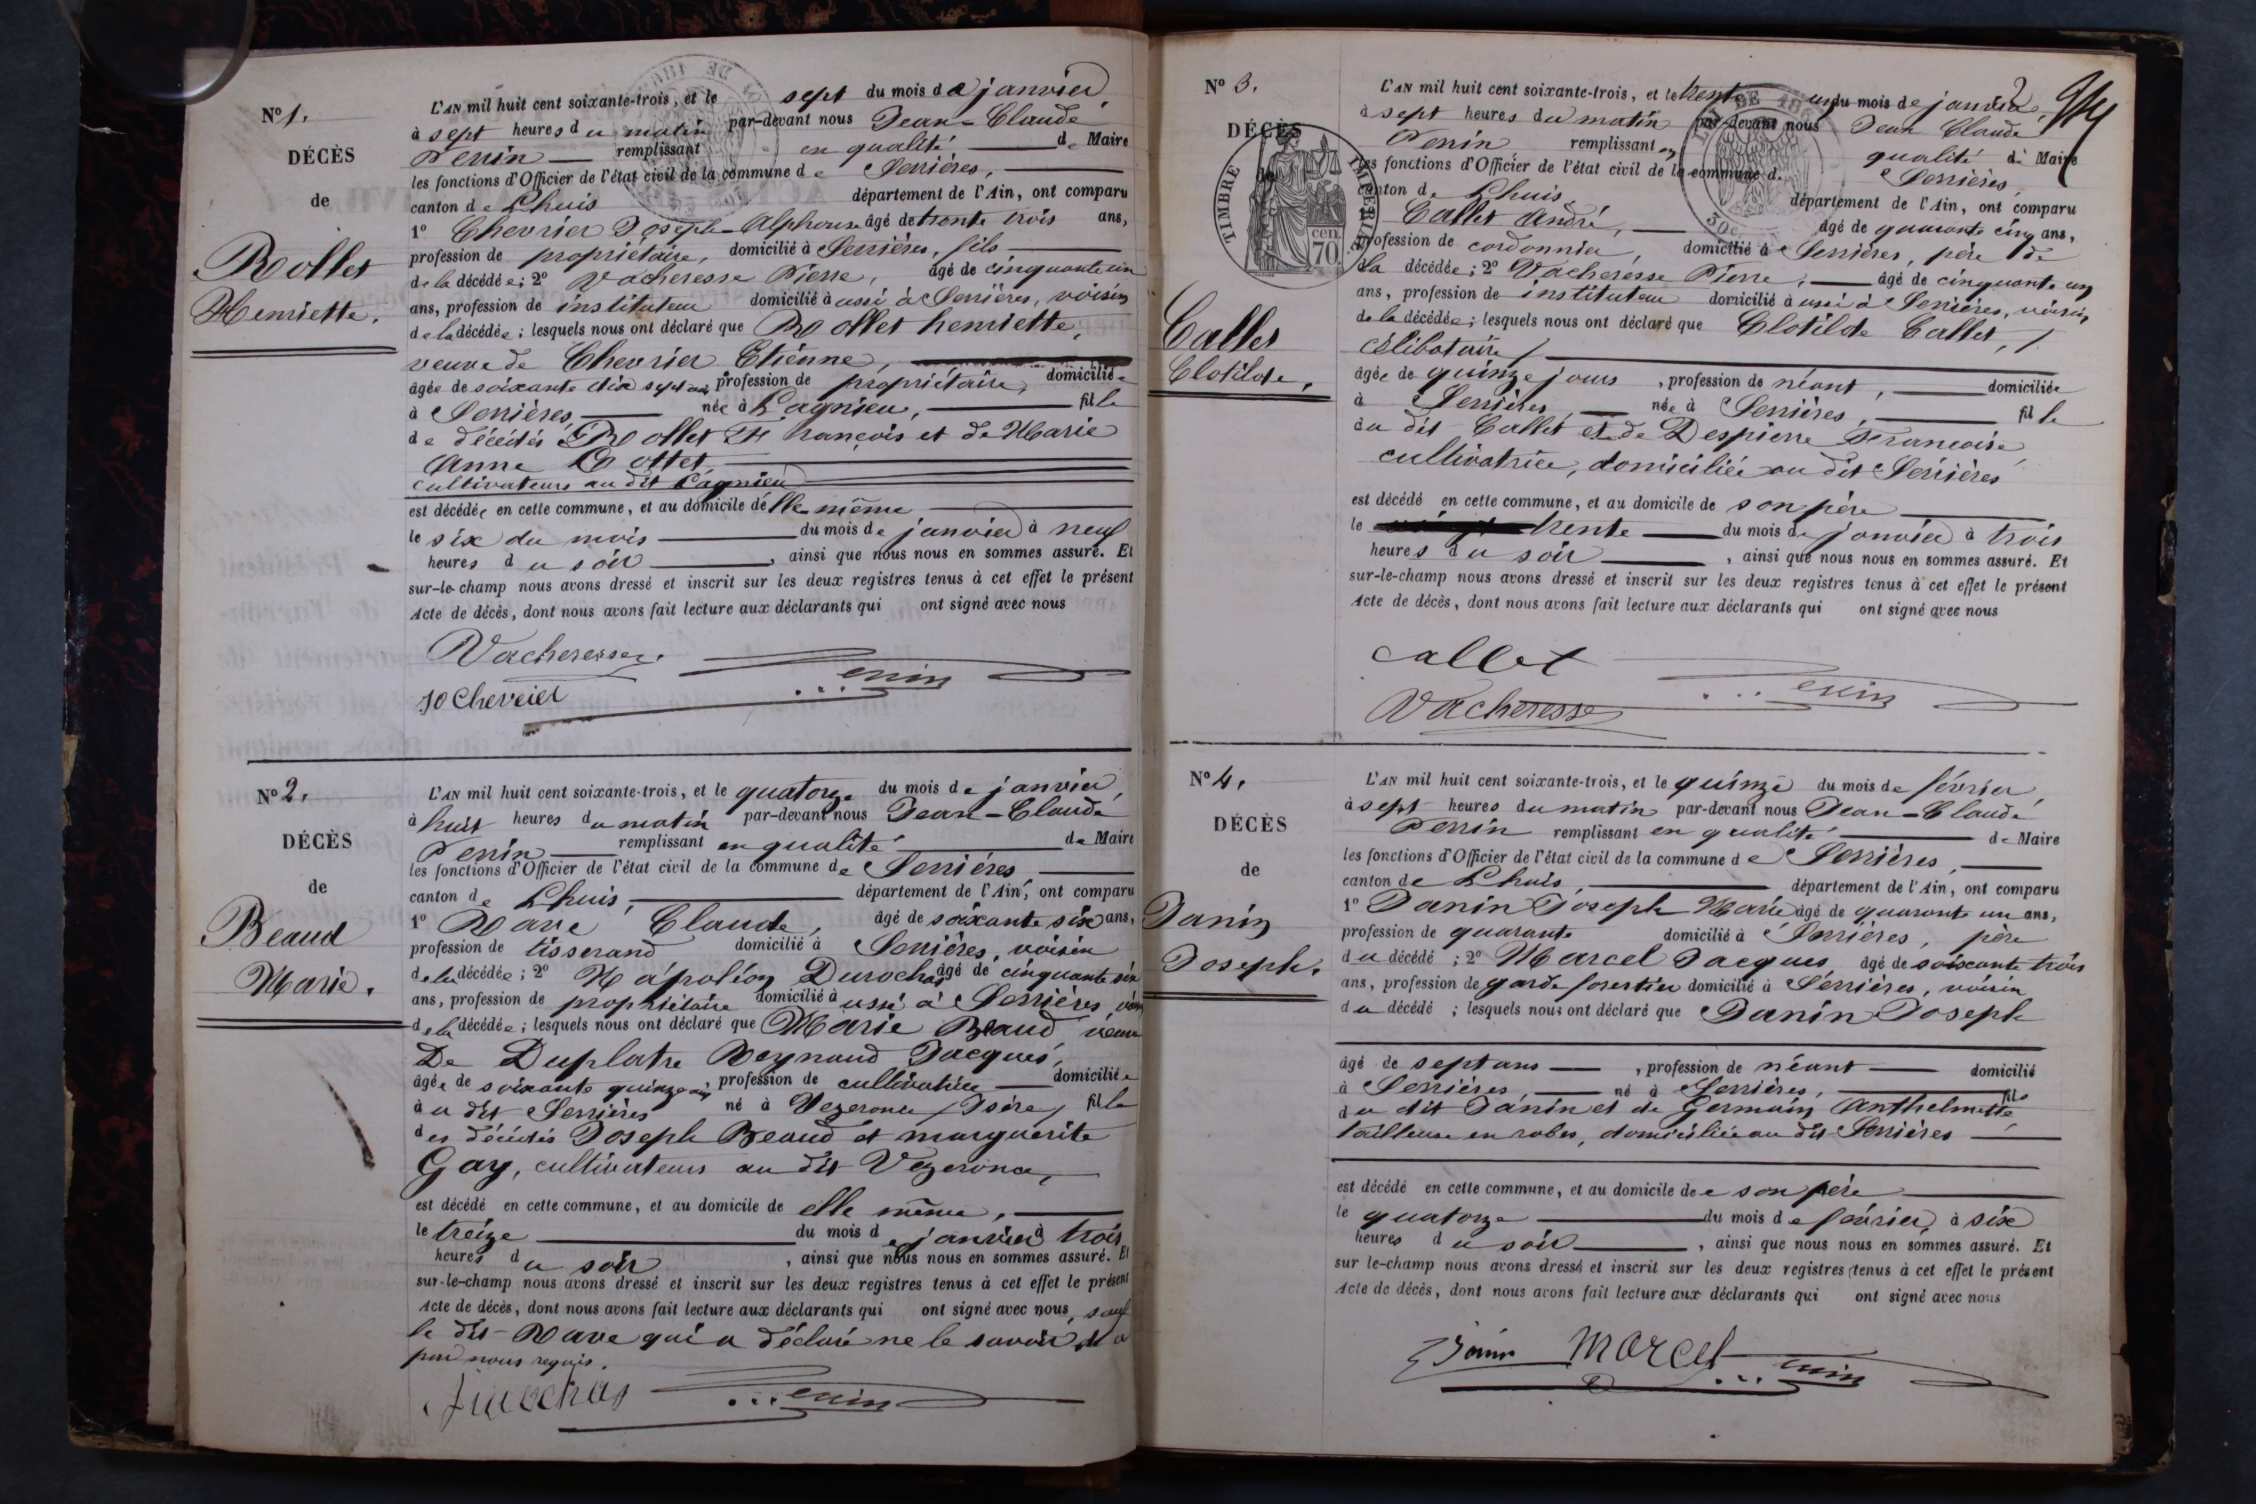 N° 1.
DÉCÈS
de
Rollet
Henriette.
L'AN mil huit cent soixante-trois, et le sept du mois de janvier,
à sept heures du matin par-devant nous Jean-Claude
Perrin remplissant en qualité de Maire
les fonctions d'Officier de l'état civil de la commune de Serrières,
canton de Lhuis département de l'Ain, ont comparu
1° Chevrier Joseph-Alphonse âgé de trente trois ans,
profession de propriétaire, domicilié à Serrières, fils
de la décédée; 2° Vacheresse Pierre, âgé de cinquante un
ans, profession de instituteur domicilié à aussi à Serrières, voisin
de la décédée; lesquels nous ont déclaré que Rollet henriette,
veuve de Chevrier Etienne,
âgée de soixante dix sept ans profession de propriétaire, domiciliée
à Serrières, née à Lagnieu, fille
de décédés Rollet François et de Marie
Anne Cottet
cultivateurs au dit Lagnieu
est décédée en cette commune, et au domicile de elle-même
le six du mois du mois de janvier à neuf
heures du soir, ainsi que nous nous en sommes assuré. Et
sur-le-champ nous avons dressé et inscrit sur les deux registres tenus à cet effet le présent
Acte de décès, dont nous avons fait lecture aux déclarants qui ont signé avec nous
Vacheresse. Perrin
jo Chevrier
N° 2.
DÉCÈS
de
Beaud
Marie.
L'AN mil huit cent soixante-trois, et le quatorze du mois de janvier,
à huit heures du matin par-devant nous Jean-Claude
Perrin remplissant en qualité de Maire
les fonctions d'Officier de l'état civil de la commune de Serrières
canton de Lhuis, département de l'Ain, ont comparu
1° Rave Claude, âgé de soixante six ans,
profession de tisserand domicilié à Serrières, voisin
de la décédée; 2° Napoléon Durochas âgé de cinquante six
ans, profession de propriétaire domicilié à aussi à Serrières, voisin
de la décédée; lesquels nous ont déclaré que Marie Beaud veuve
De Duplatre Reynaud Jacques,
âgée de soixante quinze ans profession de cultivatrice domiciliée
à au dit Serrières né à Vezeronce (Isère) fille
des décédés Joseph Beaud et marguerite
Gay, cultivateurs au dit Vezeronce,
est décédé en cette commune, et au domicile de elle même,
le treize du mois de janvier à trois
heures du soir, ainsi que nous nous en sommes assuré. Et
sur-le-champ nous avons dressé et inscrit sur les deux registres tenus à cet effet le présent
Acte de décès, dont nous avons fait lecture aux déclarants qui ont signé avec nous, sauf
le dit Rave qui a déclaré ne le savoir de ce
par nous requis.
Durochas Perrin
N° 3.
DÉCÈS
TIMBRE IMPÉRIAL
70 cen.
Callet
Clotilde,
L'AN mil huit cent soixante-trois, et le trente un du mois de janvier,
à sept heures du matin par-devant nous Jean Claude
Perrin remplissant en qualité de Maire
les fonctions d'Officier de l'état civil de la commune de Serrières,
canton de Lhuis département de l'Ain, ont comparu
Callet André, âgé de quarante cinq ans,
profession de cordonnier domicilié à Serrières, père de
la décédée; 2° Vacheresse Pierre, âgé de cinquante un
ans, profession de instituteur domicilié à aussi à Serrières, voisin
de la décédée; lesquels nous ont déclaré que Clotilde Callet,
célibataire
âgée de quinze jours, profession de néant, domiciliée
à Serrières, née à Serrières, fille
du dit Callet et de Despierre Françoise
cultivatrice, domiciliée au dit Serrières
est décédé en cette commune, et au domicile de son père
le trente du mois de janvier à trois
heures du soir, ainsi que nous nous en sommes assuré. Et
sur-le-champ nous avons dressé et inscrit sur les deux registres tenus à cet effet le présent
Acte de décès, dont nous avons fait lecture aux déclarants qui ont signé avec nous
callet Perrin
Vacheresse
N° 4.
DÉCÈS
de
Janin
Joseph.
L'AN mil huit cent soixante-trois, et le quinze du mois de février,
à sept heures du matin par-devant nous Jean-Claude
Perrin remplissant en qualité de Maire
les fonctions d'Officier de l'état civil de la commune de Serrières,
canton de Lhuis, département de l'Ain, ont comparu
1° Janin Joseph Marie âgé de quarante un ans,
profession de quarante domicilié à Serrières, père
du décédé; 2° Marcel Jacques âgé de soixante trois
ans, profession de garde forestier domicilié à Serrières, voisin
du décédé; lesquels nous ont déclaré que Janin Joseph
âgé de sept ans, profession de néant domicilié
à Serrières, né à Serrières, fils
du dit Janin et de Germain Anthelmette
tailleuse en robes, domiciliée au dit Serrières
est décédé en cette commune, et au domicile de son père
le quatorze du mois de février à six
heures du soir, ainsi que nous nous en sommes assuré. Et
sur le-champ nous avons dressé et inscrit sur les deux registres tenus à cet effet le présent
Acte de décès, dont nous avons fait lecture aux déclarants qui ont signé avec nous
Janin Marcel Perrin